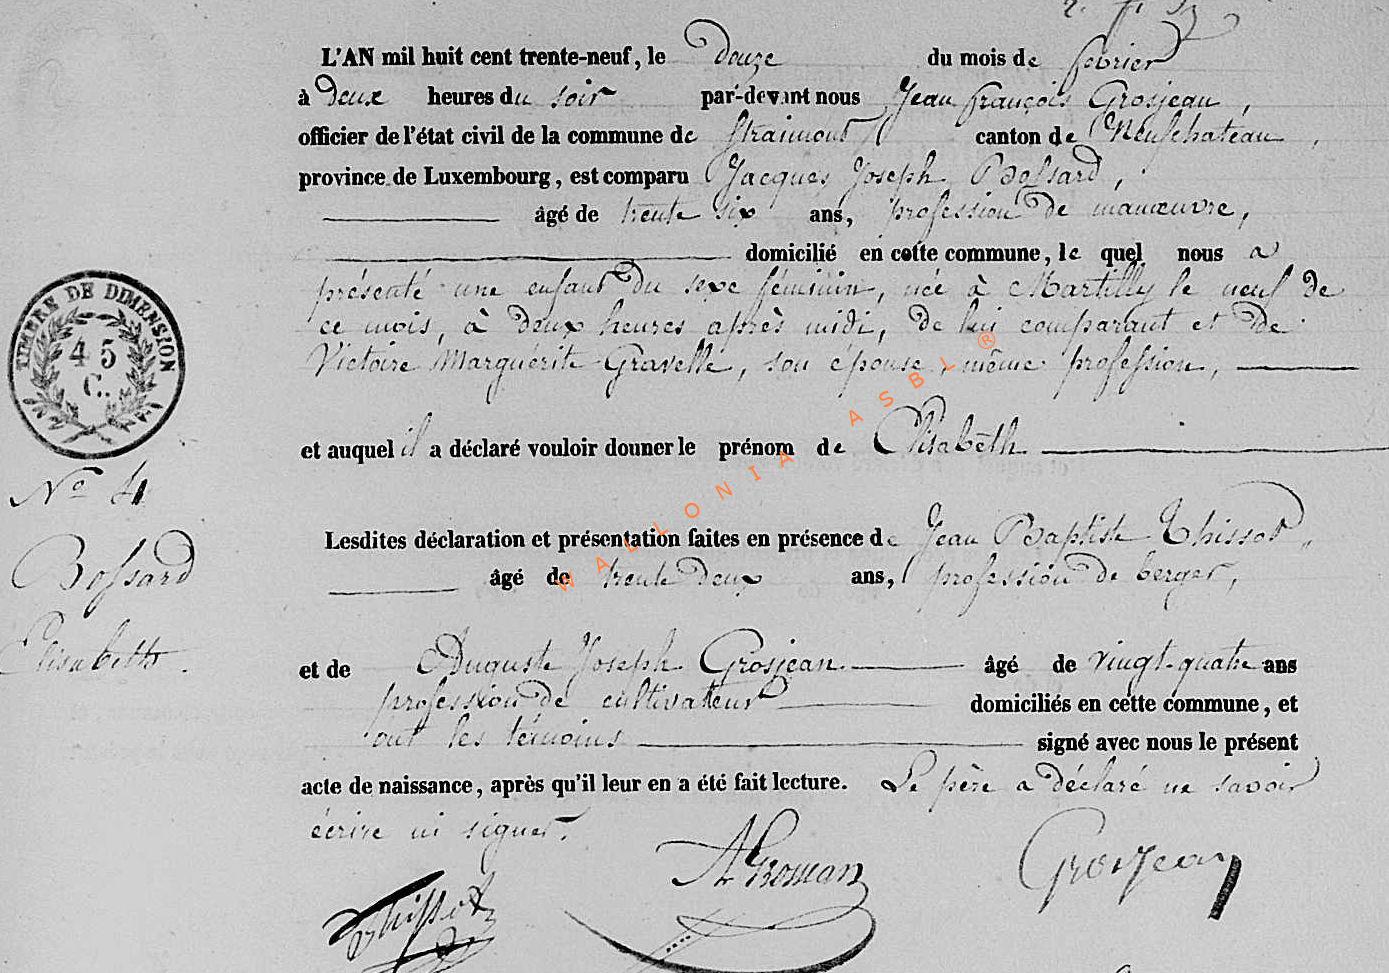 L'AN mil huit cent trente-neuf, le douze du mois de février
à deux heures du soir par-devant nous Jean françois Grosjean,
officier de l'état civil de la commune de Straimont canton de Neufchateau,
province de Luxembourg, est comparu Jacques Joseph Bossard,
âgé de trente six ans, profession de manœuvre,
domicilié en cette commune, le quel nous a
présenté une enfant du sexe féminin, née à Martilly le neuf de
ce mois, à deux heures après midi, de lui comparant et de
Victoire Marguérite Gravelle, son épouse, même profession,
et auquel il a déclaré vouloir donner le prénom de Elisabeth
Lesdites déclaration et présentation faites en présence de Jean Baptiste Thissot,
âgé de trente deux ans, profession de berger,
et de Auguste Joseph Grosjean âgé de vingt-quatre ans
profession de cultivateur domiciliés en cette commune, et
ont les témoins signé avec nous le présent
acte de naissance, après qu'il leur en a été fait lecture. Le père a déclaré ne savoir
écrire ni signer.
Thissot A Grosjean Grosjean
TIMBRE DE DIMENSION
45
C.
N° 4
Bossard
Elisabeth.
WALLONIA ASBL ®